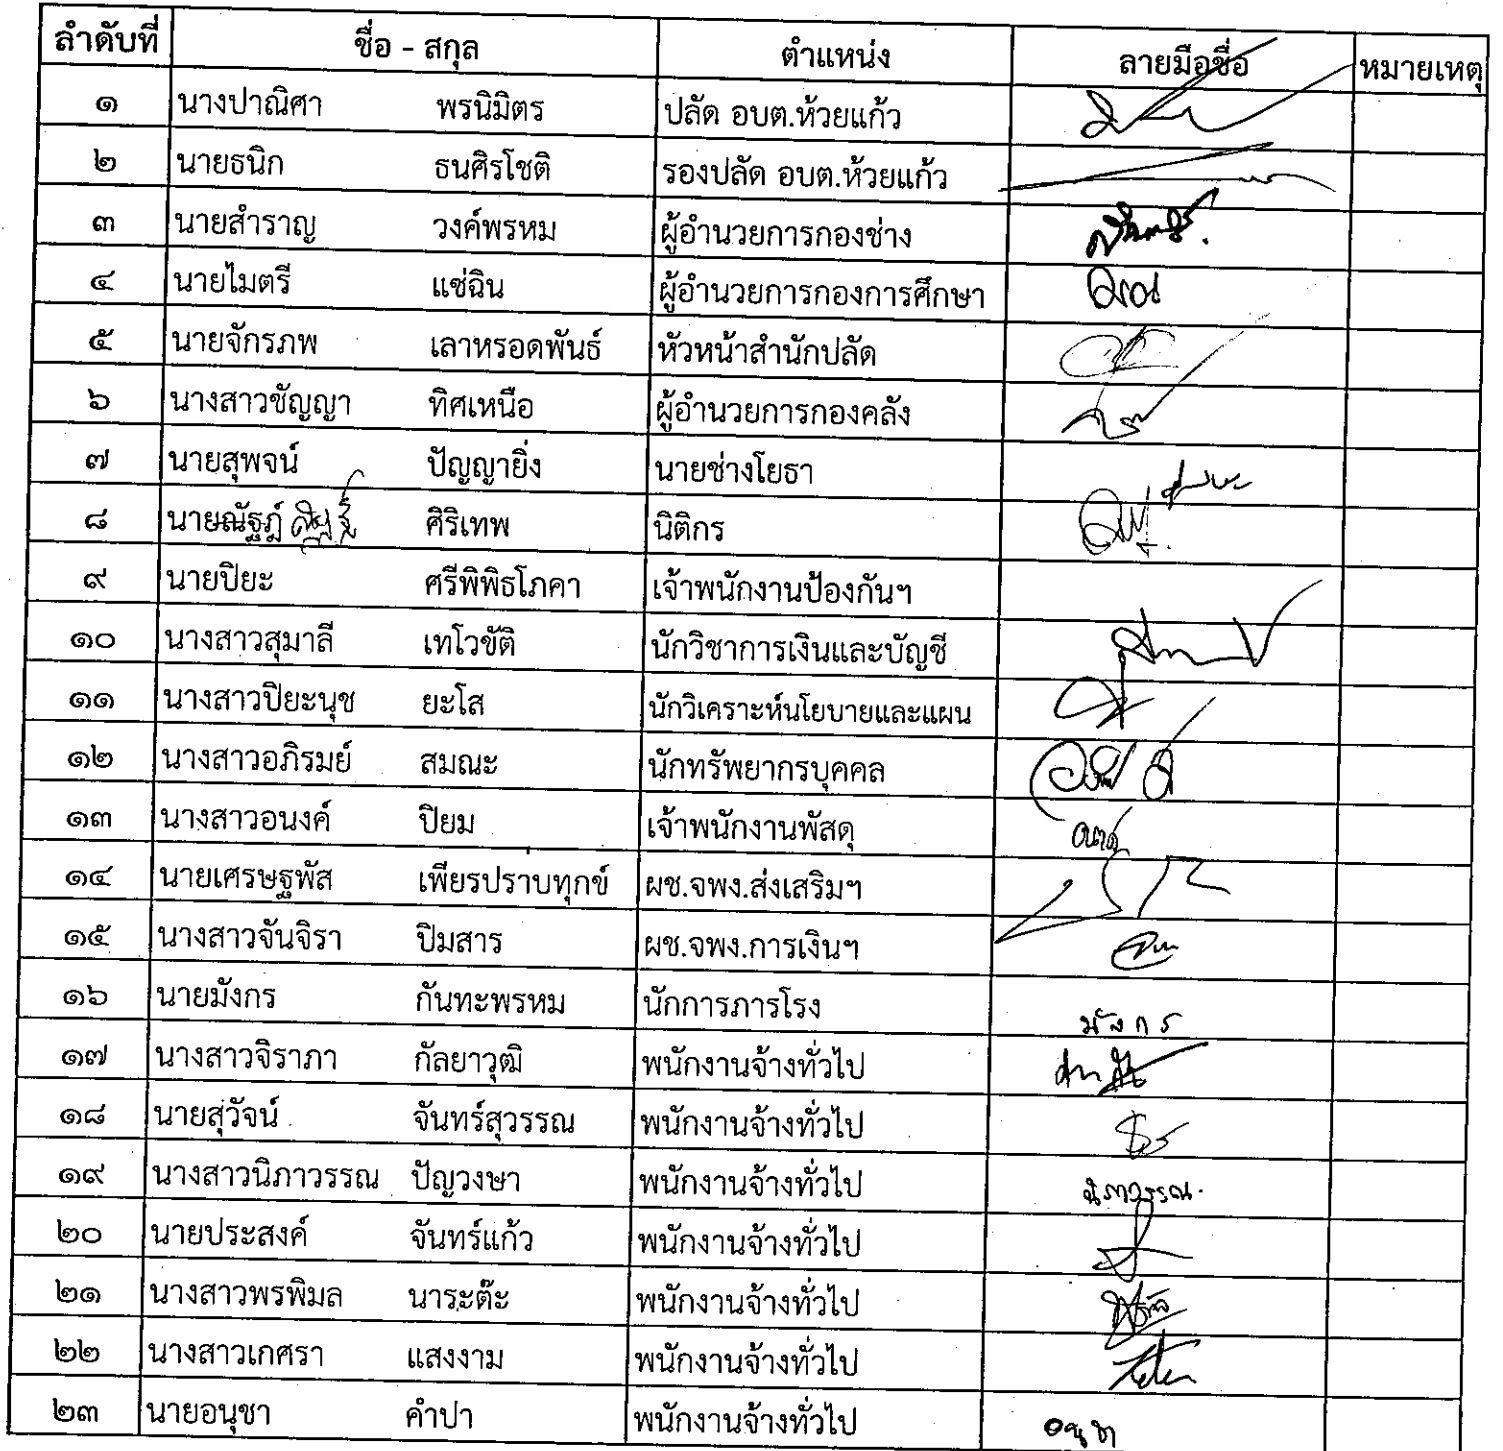 ลำดับที่ ชื่อ - สกุล ตำแหน่ง ลายมือชื่อ หมายเหตุ
๑ นางปาณิศา พรนิมิตร ปลัด อบต.ห้วยแก้ว
๒ นายธนิก ธนศิรโชติ รองปลัด อบต.ห้วยแก้ว
๓ นายสำราญ วงค์พรหม ผู้อำนวยการกองช่าง
๔ นายไมตรี แซ่ฉิน ผู้อำนวยการกองการศึกษา
๕ นายจักรภพ เลาหรอดพันธ์ หัวหน้าสำนักปลัด
๖ นางสาวชัญญา ทิศเหนือ ผู้อำนวยการกองคลัง
๗ นายสุพจน์ ปัญญายิ่ง นายช่างโยธา
๘ นายณัฐภู์ ศิริเทพ นิติกร
๙ นายปิยะ ศรีพิพิธโภคา เจ้าพนักงานป้องกันฯ
๑๐ นางสาวสุมาลี เทโวขัติ นักวิชาการเงินและบัญชี
๑๑ นางสาวปิยะนุช ยะโส นักวิเคราะห์นโยบายและแผน
๑๒ นางสาวอภิรมย์ สมณะ นักทรัพยากรบุคคล
๑๓ นางสาวอนงค์ ปิยม เจ้าพนักงานพัสดุ
๑๔ นายเศรษฐพัส เพียรปราบทุกข์ ผช.จพง.ส่งเสริมฯ
๑๕ นางสาวจันจิรา ปิมสาร ผช.จพง.การเงินฯ
๑๖ นายมังกร กันทะพรหม นักการภารโรง มังกร
๑๗ นางสาวจิราภา กัลยาวุฒิ พนักงานจ้างทั่วไป
๑๘ นายสุวัจน์ จันทร์สุวรรณ พนักงานจ้างทั่วไป
๑๙ นางสาวนิภาวรรณ ปัญวงษา พนักงานจ้างทั่วไป นิภาวรรณ
๒๐ นายประสงค์ จันทร์แก้ว พนักงานจ้างทั่วไป
๒๑ นางสาวพรพิมล นาระต๊ะ พนักงานจ้างทั่วไป
๒๒ นางสาวเกศรา แสงงาม พนักงานจ้างทั่วไป
๒๓ นายอนุชา คำปา พนักงานจ้างทั่วไป อนุชา